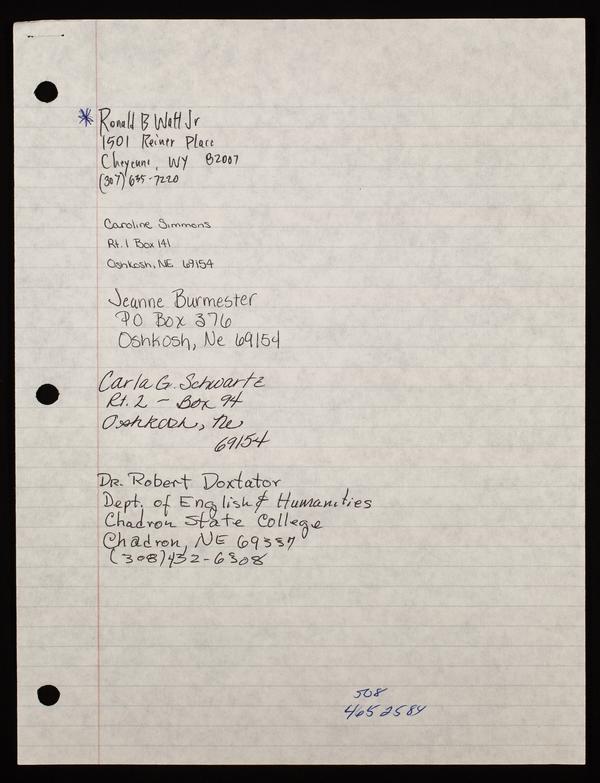 * Ronald B Watt Jr
1501 Reiner Place
Cheyenne, WY 82007
(307) 635-7220
Caroline Simmons
Rt. 1 Box 141
Oshkosh, NE 69154
Jeanne Burmester
PO Box 376
Oshkosh, Ne 69154
Carla G. Schwartz
Rt. 2 - Box 94
Oshkosh, Ne
69154
Dr. Robert Doxtator
Dept. of English & Humanities
Chadron State College
Chadron, NE 69337
(308) 432-6308
508
465 2584